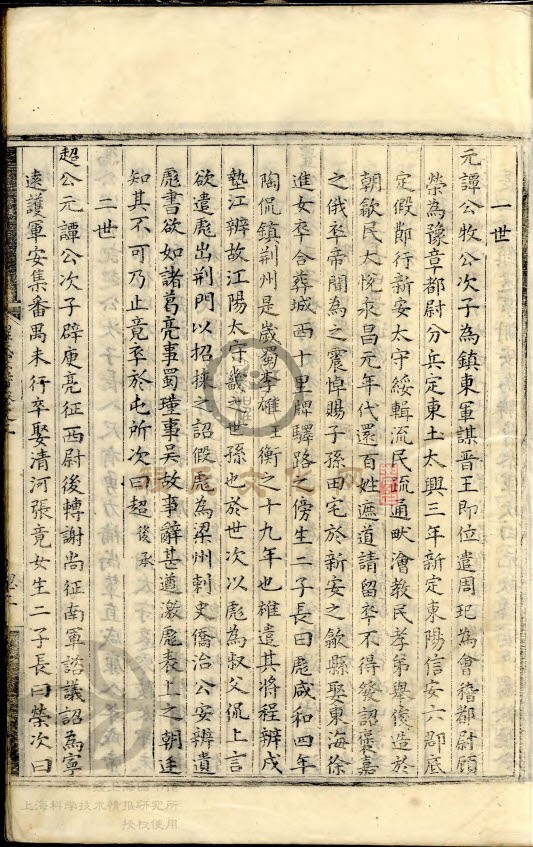 一世
元譚公牧公次子為鎮東軍謀晉王即位遣周玘為會稽都尉顧
榮為豫章都尉分兵定東土太興三年新定東陽信安六郡底
定假節行新安太守綏輯流民疏通畎澮教民孝弟舉後造於
朝歙民大悅永昌元年代還百姓遮道請留卒不得發詔褒嘉
之俄卒帝聞為之震悼賜子孫田宅於新安之歙縣娶東海徐
進女卒合葬城西十里牌驛路之傍生二子長曰彪咸和四年
陶侃鎮荊州是歲蜀李雄玉衡之十九年也雄遣其將程辨戍
墊江辨故江陽太守畿之世孫也於世次以彪為叔父侃上言
欲遣彪出荊門以招撫之詔假彪為梁州刺史僑治公安辨遺
彪書欲如諸葛亮事蜀瑾事吳故事辭甚遒激彪表上之朝廷
知其不可乃止竟卒於屯所次曰超後承
二世
超公元譚公次子辟庾亮征西尉後轉謝尚征南軍諮議詔為寧
遠護軍安集番禺未行卒娶清河張竟女生二子長曰榮次曰
上海科学技术情报研究所
授权使用